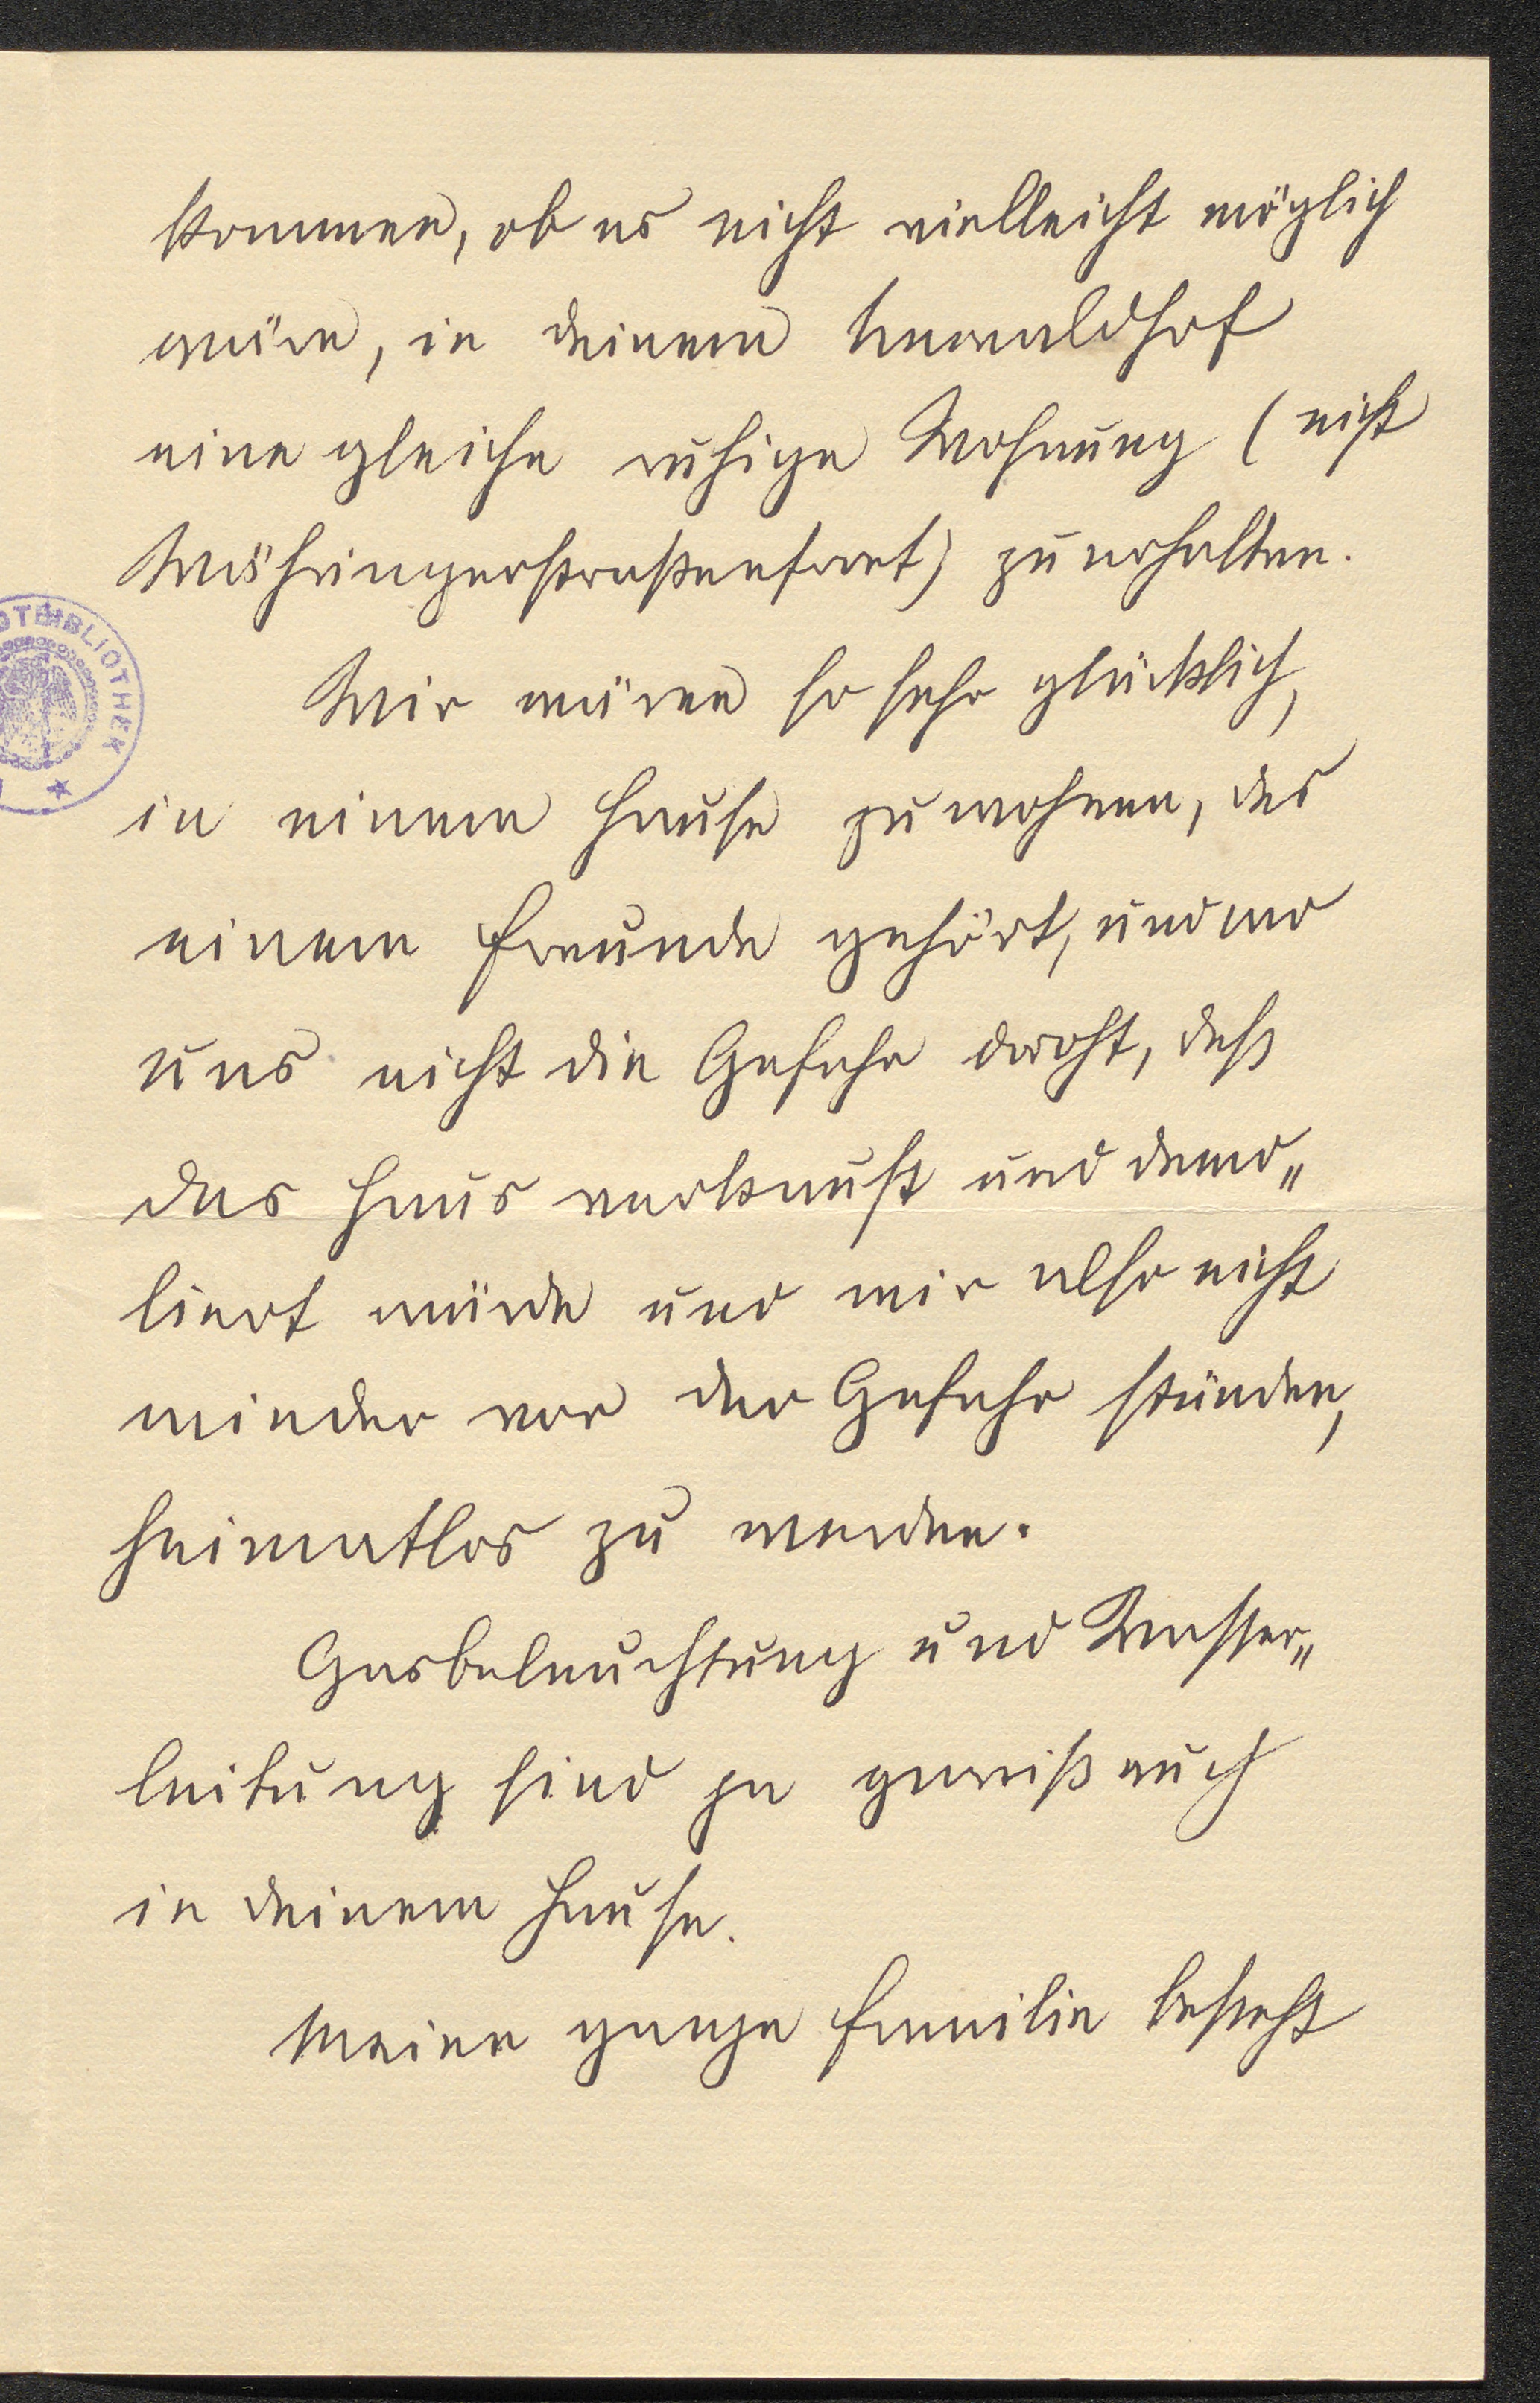 kommen, ob es nicht vielleicht möglich
wäre, in deinem
eine gleiche ruhige Wohnung (nicht
Währingerstraßenfront) zu erhalten.
OTBIBLIOTHEK
Wir wären so sehr glücklich,
in einem Hause zu wohnen, das
einem Freunde gehört, und wo
uns nicht die Gefahr droht, daß
das Haus verkauft und demo„
liert würde und wir also nicht
minder vor der Gefahr stünden,
heimatlos zu werden.
Gasbeleuchtung und Wasser„
leitung sind ja gewiß auch
in deinem Hause.
Meine ganze Familie besteht